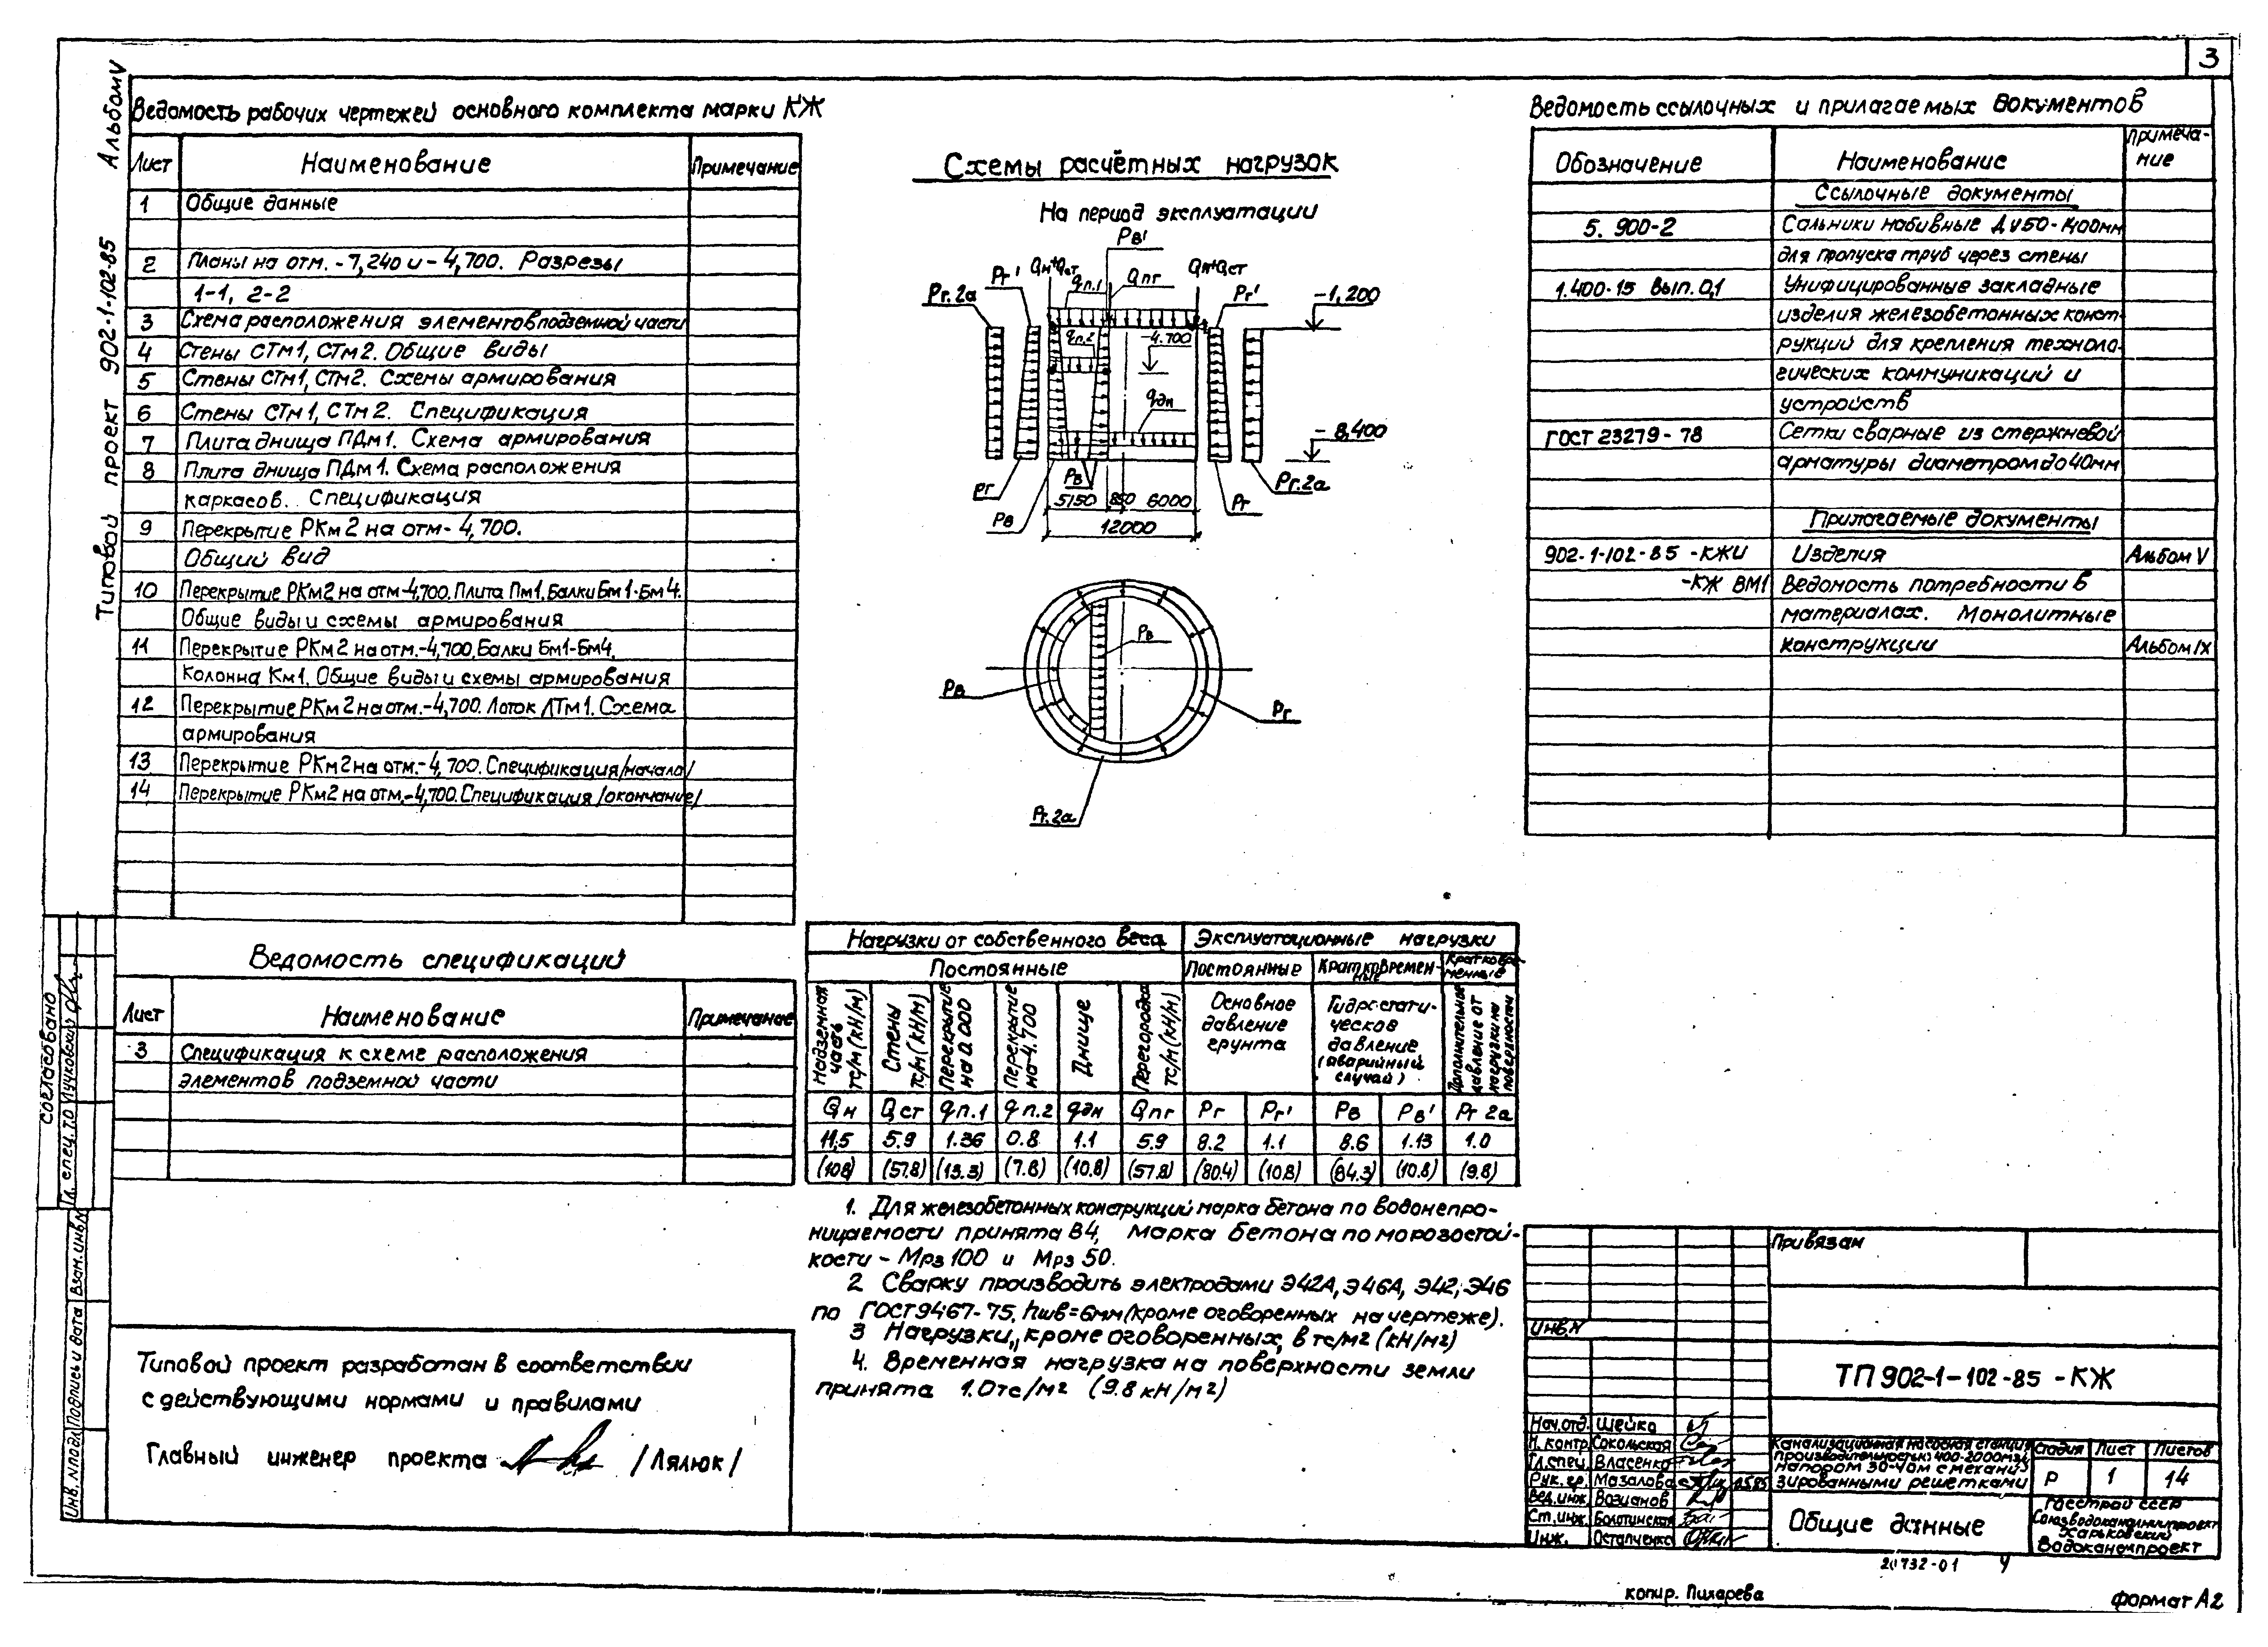 3
Альбом V
Типовой проект 902-1-102-85
Ведомость рабочих чертежей основного комплекта марки КЖ
Лист Наименование Примечание
1 Общие данные
2 Планы на отм. -7,240 и -4,700. Разрезы
1-1, 2-2
3 Схема расположения элементов подземной части
4 Стены СТм1, СТм2. Общие виды
5 Стены СТм1, СТм2. Схемы армирования
6 Стены СТм1, СТм2. Спецификация
7 Плита днища ПДм1. Схема армирования
8 Плита днища ПДм1. Схема расположения
каркасов. Спецификация
9 Перекрытие РКм2 на отм-4,700.
Общий вид
10 Перекрытие РКм2 на отм-4,700. Плита Пм1. Балки Бм1-Бм4.
Общие виды и схемы армирования
11 Перекрытие РКм2 на отм.-4,700. Балки Бм1-Бм4.
Колонна Км1. Общие виды и схемы армирования
12 Перекрытие РКм2 на отм.-4,700. Лоток ЛТм1. Схема
армирования
13 Перекрытие РКм2 на отм.-4,700. Спецификация /начало/
14 Перекрытие РКм2 на отм.-4,700. Спецификация /окончание/
Ведомость спецификаций
Лист Наименование Примечание
3 Спецификация к схеме расположения
элементов подземной части
Типовой проект разработан в соответствии
с действующими нормами и правилами
Главный инженер проекта /Лялюк/
Согласовано
Гл. спец. Т.О Пучковский
Инв.№подл Подпись и дата Взам.инв№
Схемы расчётных нагрузок
На период эксплуатации
Рв'
Qн+Qст qп.1 Qпг Qн+Qст
Рг.2а Рг' Рг' -1,200
qп.2 -4.700
qдн
-8,400
Рг Рв Рв Рг Рг.2а
5150 850 6000
12000
Рв
Рв Рг
Рг.2а
Нагрузки от собственного веса Эксплуатационные нагрузки
Постоянные Постоянные Кратковременные Кратковременные
Надземная часть тс/м (кН/м)
Стены тс/м (кН/м)
Перекрытие на 0.000
Перекрытие на-4.700
Днище
Перегородка тс/м (кН/м)
Основное давление грунта
Гидростатическое давление (аварийный случай)
Дополнительное давление от нагрузки на поверхности
Qн Qст qп.1 qп.2 qдн Qпг Рг Рг' Рв Рв' Рг 2а
11,5 5.9 1.36 0.8 1.1 5.9 8.2 1.1 8.6 1.13 1.0
(108) (57.8) (13.3) (7.8) (10.8) (57.8) (80.4) (10.8) (84.3) (10.8) (9.8)
1. Для железобетонных конструкций марка бетона по водонепро-
ницаемости принята В4, марка бетона по морозостой-
кости - Мрз 100 и Мрз 50.
2 Сварку производить электродами Э42А, Э46А, Э42, Э46
по ГОСТ 9467-75, hшв=6мм (кроме оговоренных на чертеже).
3 Нагрузки, кроме оговоренных, в тс/м2 (кН/м2)
4. Временная нагрузка на поверхности земли
принята 1.0тс/м2 (9.8 кН/м2)
Ведомость ссылочных и прилагаемых документов
Обозначение Наименование Примеча-
ние
Ссылочные документы
5. 900-2 Сальники набивные ДУ50-1400мм
для пропуска труб через стены
1.400-15 вып. 0,1 Унифицированные закладные
изделия железобетонных конст-
рукций для крепления техноло-
гических коммуникаций и
устройств
ГОСТ 23279-78 Сетки сварные из стержневой
арматуры диаметром до 40мм
Прилагаемые документы
902-1-102-85 -КЖИ Изделия Альбом V
-КЖ ВМ1 Ведомость потребности в
материалах. Монолитные
конструкции Альбом IX
Привязан
Инв.№
ТП 902-1-102-85 -КЖ
Нач.отд. Шейко
Н. контр. Сокольская
Гл.спец. Власенко
Рук. гр. Мазалова
Вед.инж. Возианов
Ст.инж. Болотинская
Инж. Остапченко
Канализационная насосная станция
производительностью 400-2000м3/ч
напором 30-40м с механи-
зированными решетками
Стадия Лист Листов
Р 1 14
Общие данные
Госстрой СССР
Союзводоканалниипроект
Харьковский
Водоканалпроект
20732-01 4
копир. Пихарева
формат А2